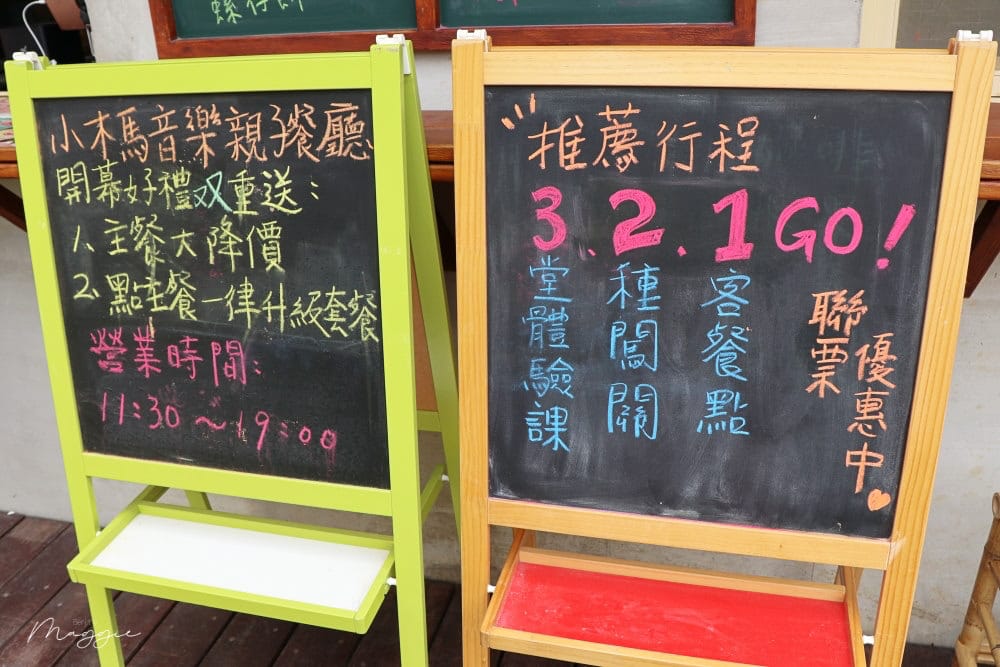 小木馬音樂親子餐廳
開幕好禮双重送：
1、主餐大降價
2、點主餐一律升級套餐
營業時間：
11:30～19:00
推薦行程
3.2.1GO!
堂體驗課
種闖關
客餐點
聯票
優惠中
Maggie